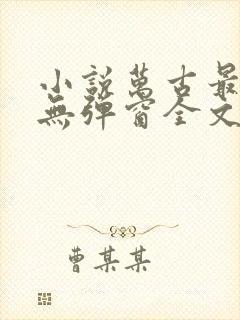 小說萬古最
無彈窗全文
曹某某